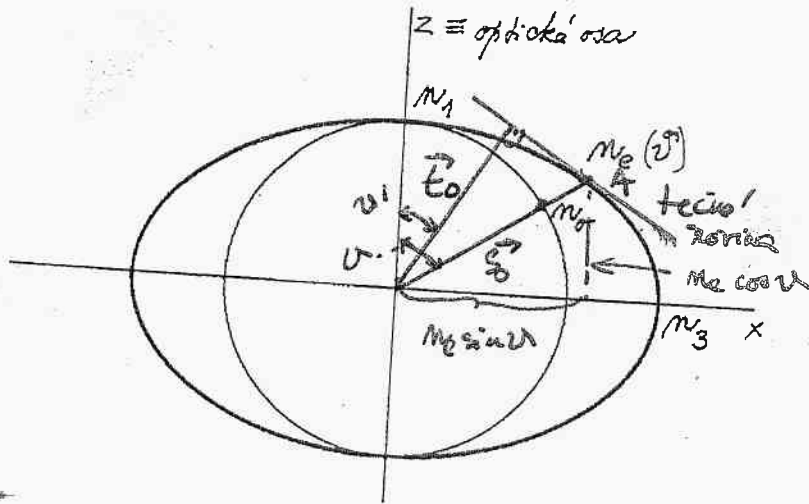 z ≡ optická osa
n₁
nₑ(ϑ)
tečná
rovina
t⃗₀
ϑ'
ϑ
nₒ
s⃗₀
nₑ cos ϑ
nₑ sin ϑ
n₃
x